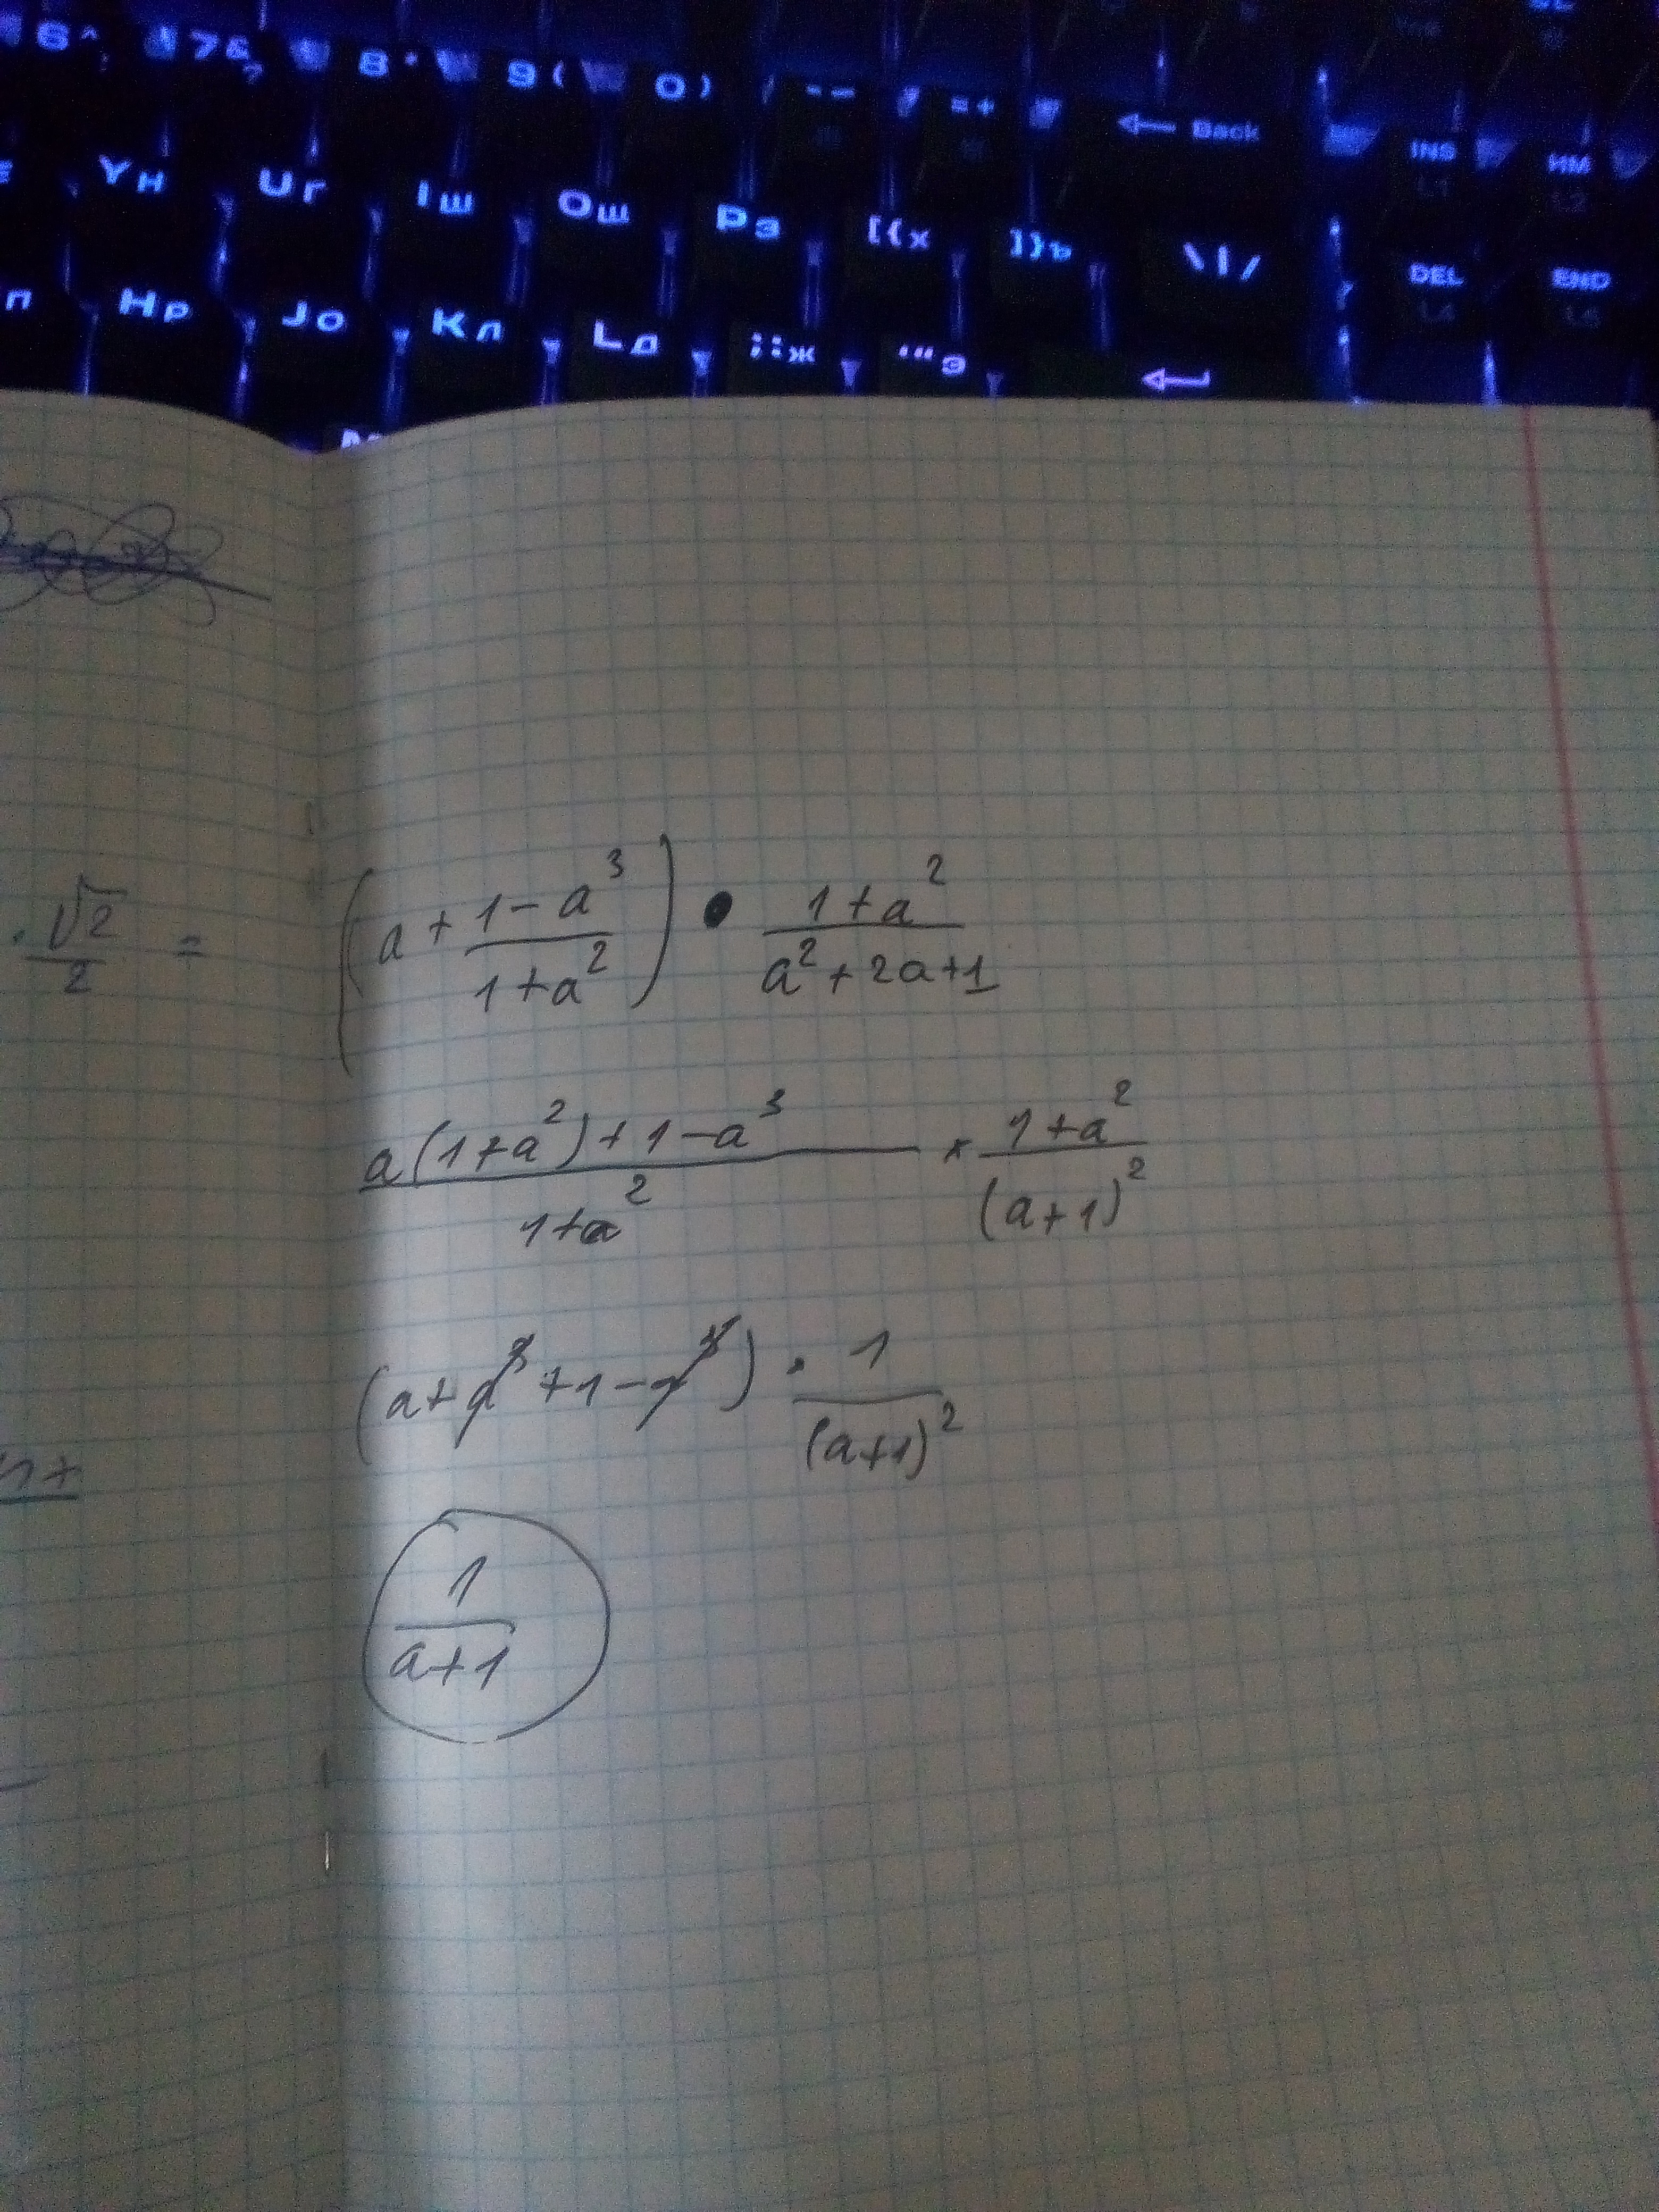 6^ 7& ? 8* 9( 0) -- =+ ← Back INS HM
Yн Uг Iш Oщ Pз [{х ]}ъ \|/ DEL END
п Hр Jо Kл Lд ;:ж '"э ←
M
. √2/2 =
(a + (1-a³)/(1+a²)) • (1+a²)/(a²+2a+1)
(a(1+a²)+1-a³)/(1+a²) × (1+a²)/(a+1)²
(a+a³+1-a³) · 1/(a+1)²
1/(a+1)